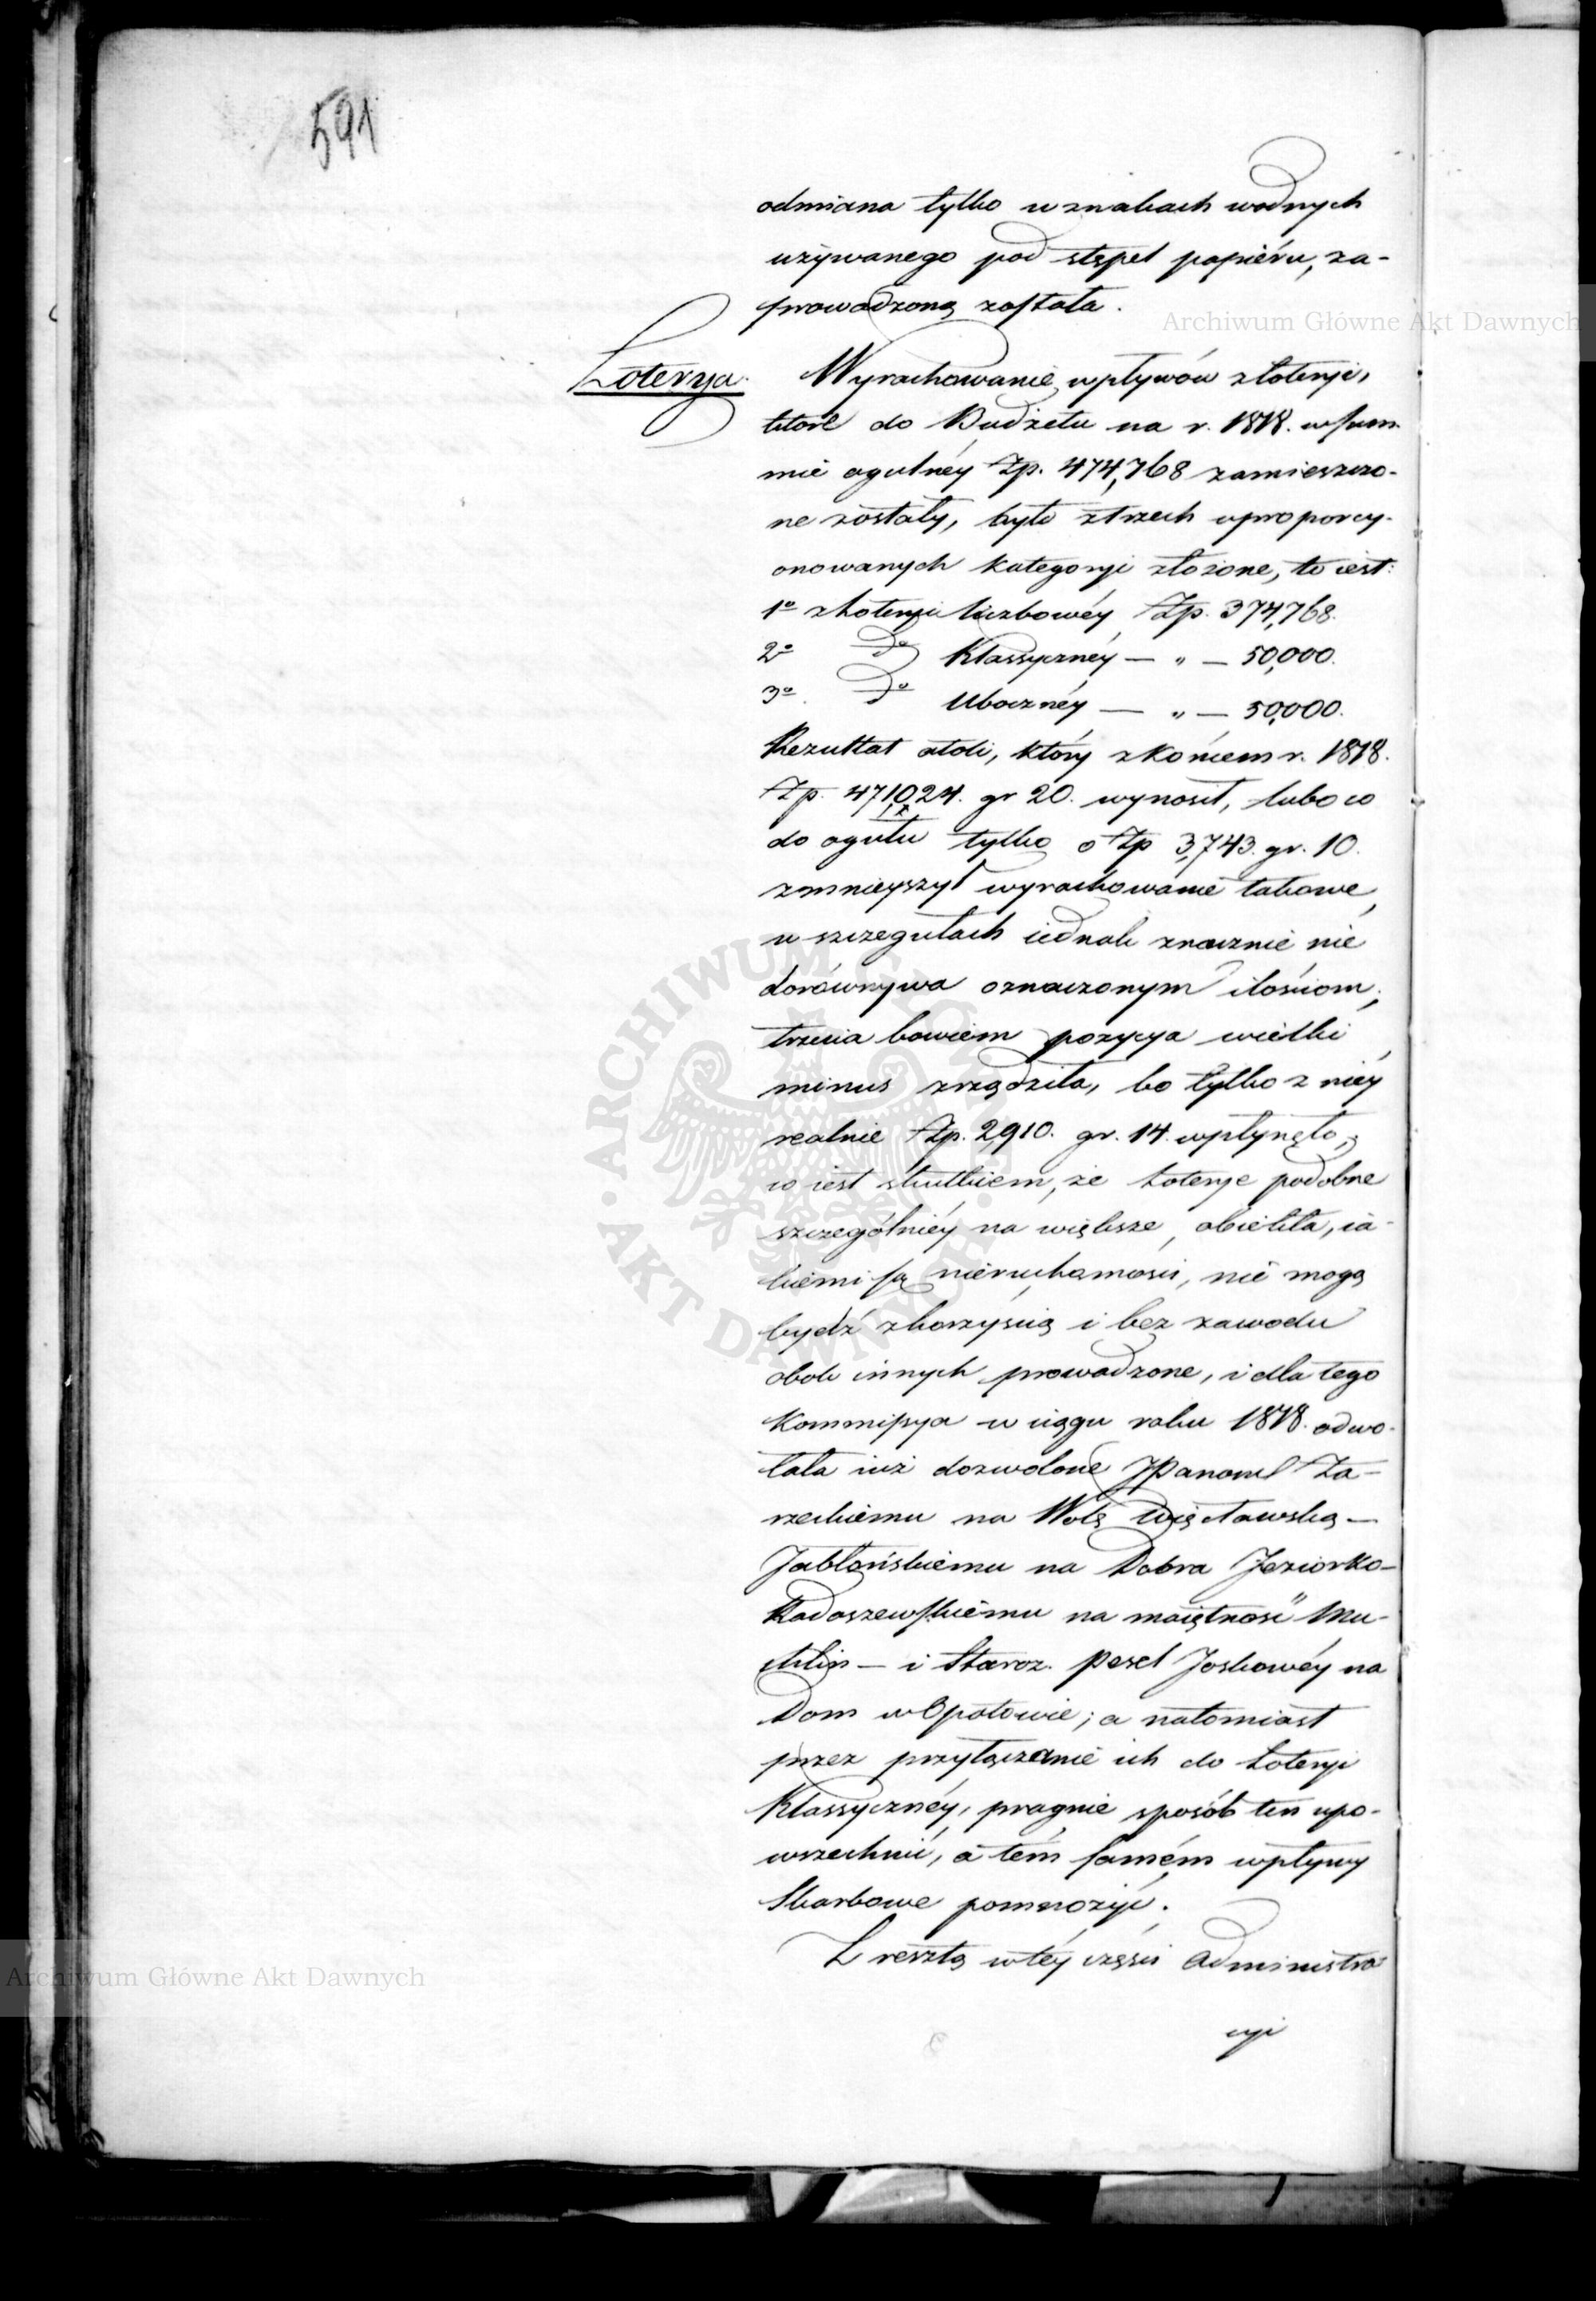 591
odmiana tylko w znakach wodnych
używanego pod stępel papiéru, za-
prowadzoną została.
Loterya.
Wyrachowanie wpływów z loteryi,
które do Budżetu na r. 1818. w sum-
mie ogulnéy Zp. 474,768 zamieszczo-
ne zostały, było z trzech uproporcy-
onowanych kategoryi złożone, to iest:
1o z Loteryi liczbowéy Zp. 374,768.
2o do Klassycznéy — „ — 50,000.
3o. do Ubocznéy — „ — 50,000.
Rezultat atoli, który z końcem r. 1818.
Zp. 471,024. gr 20. wynosił, lubo co
do ogułu tylko o Zp 3,743. gr. 10.
zmnieyszył wyrachowanie takowe,
w szczegułach iednak znacznie nie
dorównywa oznaczonym ilościom;
trzecia bowiem pozycya wielki
minus zrządziła, bo tylko z niéy
realnie Zp. 2,910. gr. 14. wpłynęło,
co iest skutkiem, że Loterye podobne
szczególniéy na większe obiekta, ia-
kiemi są nieruchomości, nie mogą
bydź z korzyścią i bez zawodu
obok innych prowadzone, i dla tego
Kommissya w ciągu roku 1818. odwo-
łała iuż dozwolone JPanom Za-
rzeckiemu na Wolę Więcławską —
Jabłońskiemu na Dobra Jeziorko —
Radoszewskiemu na maiętność Mu-
chlin — i Staroz. Pesel Joskowéy na
Dom w Opatowie; a natomiast
przez przyłączanie ich do Loteryi
Klassycznéy, pragnie sposób ten upo-
wszechnić, a tém samém wpływy
Skarbowe pomnożyć.
Z resztą w téy części administra-
cyi
Archiwum Główne Akt Dawnych
ARCHIWUM GŁÓWNE · AKT DAWNYCH ·
Archiwum Główne Akt Dawnych